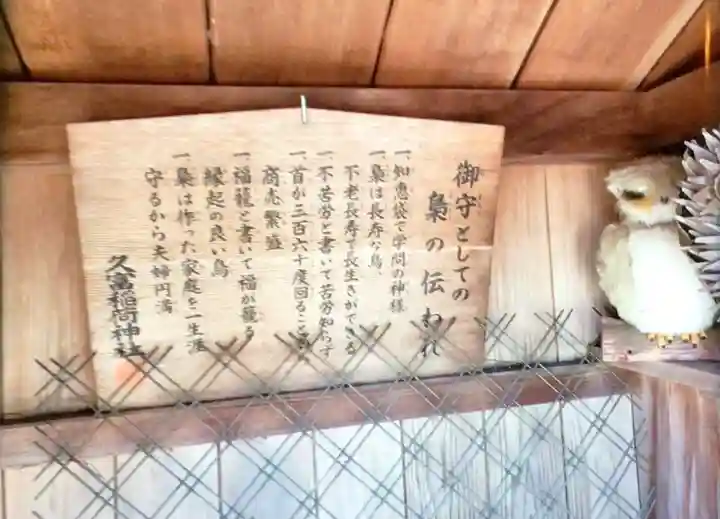 御守としての
梟の伝われ
一、知恵袋で学問の神様
一、梟は長寿な鳥、
不老長寿で長生きができる
一、不苦労と書いて苦労知らず
一、首が三百六十度回ること
商売繁盛
一、福籠と書いて福が籠る
縁起の良い鳥
一、梟は作った家庭を一生涯
守るから夫婦円満
久富稲荷神社